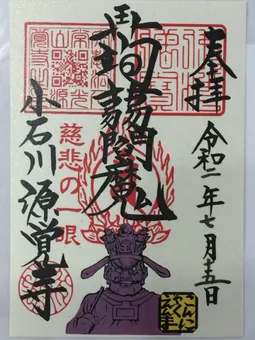 奉拝
令和二年七月十五日
蒟蒻閻魔
慈悲の一眼
小石川 源覚寺
こんにゃくえんま